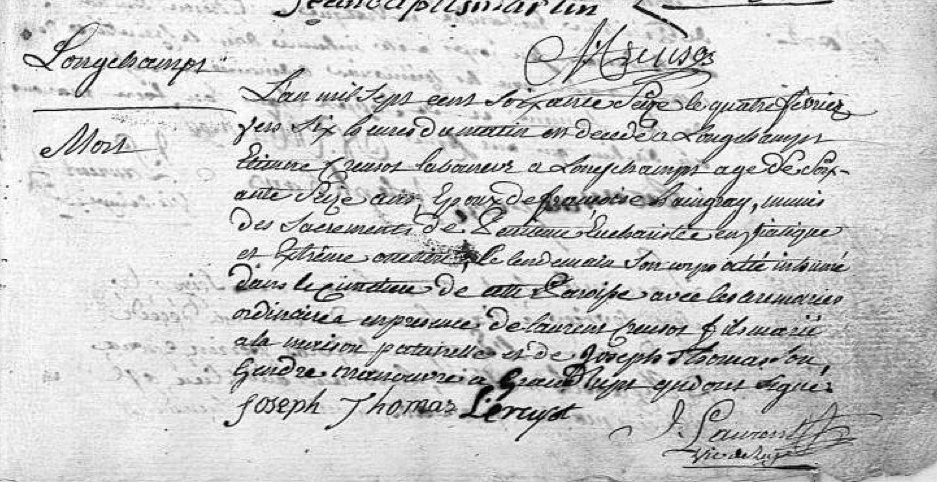 Jean baptismartin
N. Creusot
Longchamps
L'an mil Sept cent Soixante Seize le quatre fevrier
Mort
vers Six heures du matin est decedé a Longchamps
Etienne Creusot laboureur a Longchamps age de Soix-
ante Seize ans, Epoux de françoise, munis
des Sacrements de Penitence Eucharistie en viatique
et Extrême onction, le lendemain Son corps a été inhumé
dans le cimetiere de cette Paroisse avec les ceremonies
ordinaires en presence de laurent Creusot fils marié
a la maison paternelle et de Joseph Thomas Son
Gendre manouvrier a Grandrupt qui ont Signé
Joseph Thomas L creusot
J. Laurent
Vic de